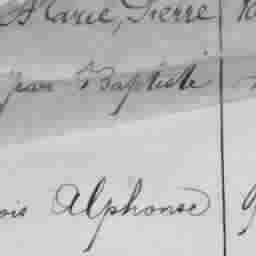 Marie, Pierre
Jean Baptiste
ois Alphonse